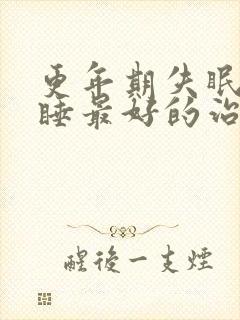 更年期失眠
睡最好的治
醒後一支煙